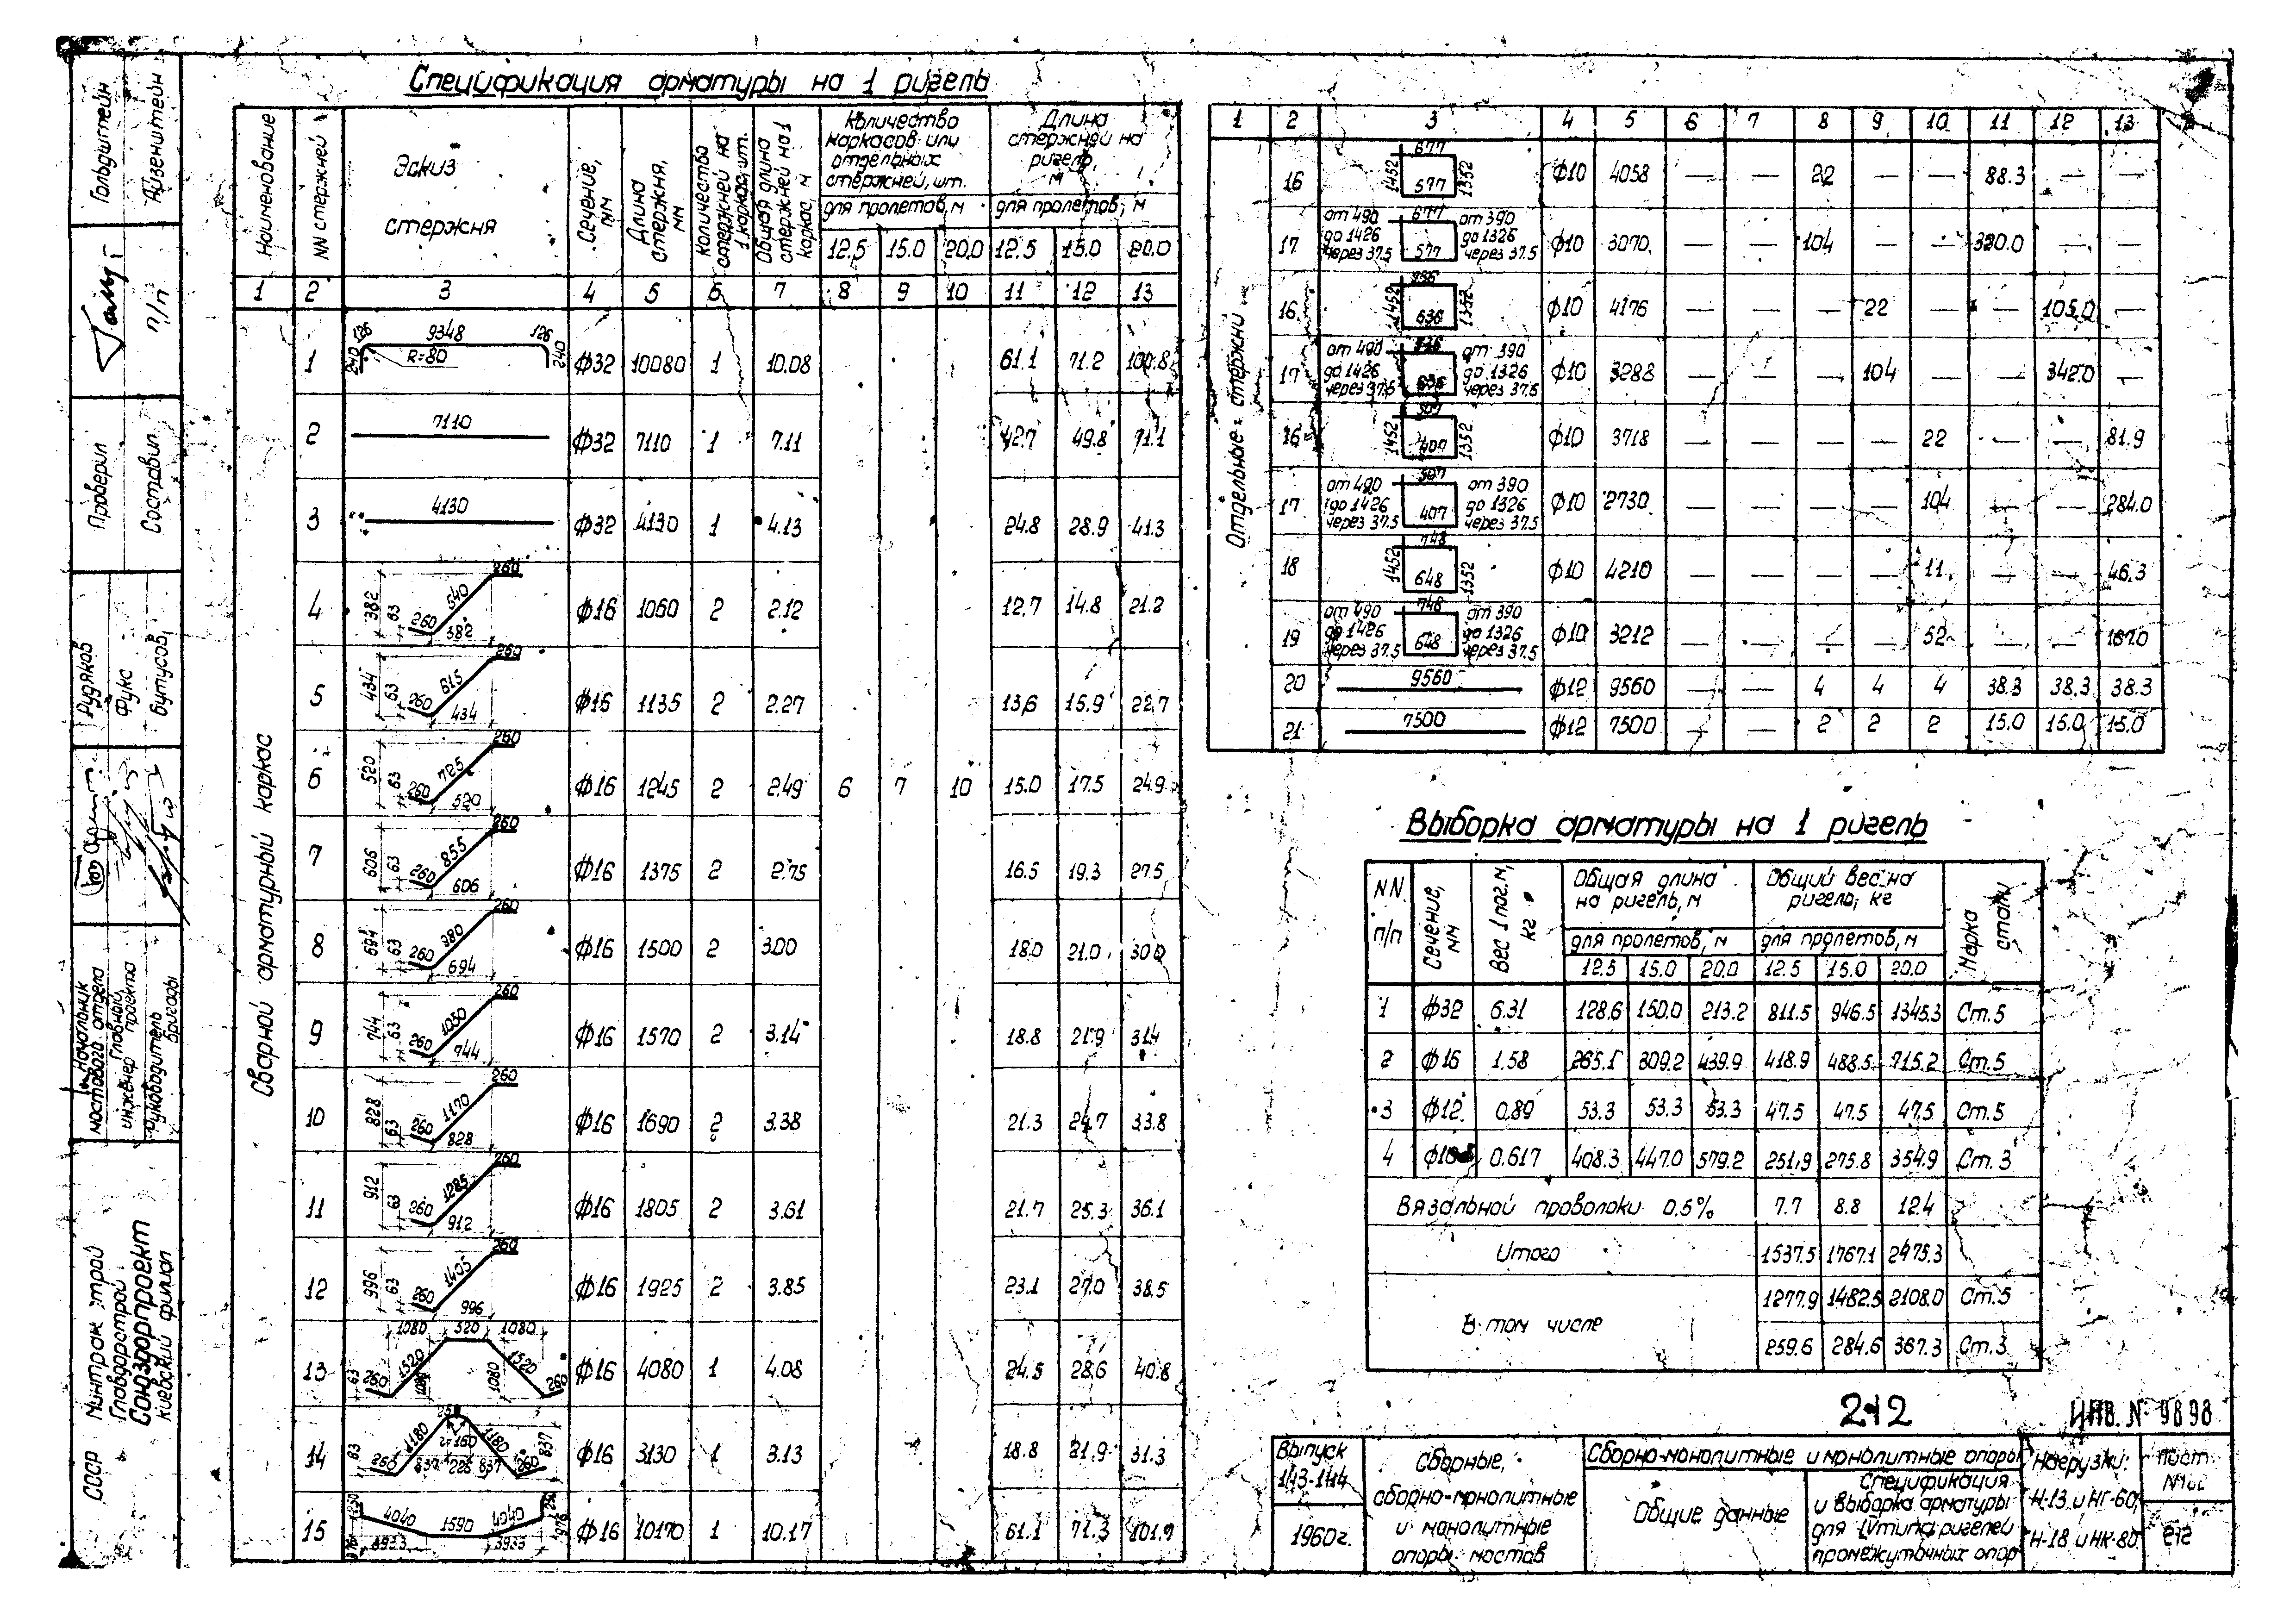 Спецификация арматуры на 1 ригель
Наименование
NN стержней
Эскиз стержня
Сечение, мм
Длина стержня, мм
Количество стержней на 1 каркас, шт.
Общая длина стержней на 1 каркас, м
Количество каркасов или отдельных стержней, шт.
Длина стержней на ригель, м
для пролетов, м для пролетов, м
12.5 15.0 20.0 12.5 15.0 20.0
1 2 3 4 5 6 7 8 9 10 11 12 13
Сварной арматурный каркас
1 240 126 9348 R=80 126 240 ф32 10080 1 10.08 61.1 71.2 100.8
2 7110 ф32 7110 1 7.11 42.7 49.8 71.1
3 4130 ф32 4130 1 4.13 24.8 28.9 41.3
4 382 63 260 540 260 382 ф16 1060 2 2.12 12.7 14.8 21.2
5 434 63 260 615 260 434 ф16 1135 2 2.27 13.6 15.9 22.7
6 520 63 260 725 260 520 ф16 1245 2 2.49 6 7 10 15.0 17.5 24.9
7 606 63 260 855 260 606 ф16 1375 2 2.75 16.5 19.3 27.5
8 694 63 260 980 260 694 ф16 1500 2 3.00 18.0 21.0 30.0
9 744 63 260 1050 260 744 ф16 1570 2 3.14 18.8 21.9 31.4
10 828 63 260 1170 260 828 ф16 1690 2 3.38 21.3 24.7 33.8
11 912 63 260 1285 260 912 ф16 1805 2 3.61 21.7 25.3 36.1
12 996 63 260 1405 260 996 ф16 1925 2 3.85 23.1 27.0 38.5
13 1080 520 1080 63 260 1520 1080 1520 260 ф16 4080 1 4.08 24.5 28.6 40.8
14 63 260 1180 r=160 1180 837 837 226 837 260 ф16 3130 1 3.13 18.8 21.9 31.3
15 4040 1590 4040 3933 3933 ф16 10170 1 10.17 61.1 71.3 101.7
1 2 3 4 5 6 7 8 9 10 11 12 13
Отдельные стержни
16 1452 677 577 1352 ф10 4058 — — 22 — — 88.3 — —
17 от 490 до 1426 через 37.5 677 577 от 390 до 1326 через 37.5 ф10 3070 — — 104 — — 320.0 — —
16 1452 636 1352 ф10 4176 — — — 22 — — 105.0 —
17 от 490 до 1426 через 37.5 636 от 390 до 1326 через 37.5 ф10 3288 — — — 104 — — 342.0 —
16 1452 507 407 1352 ф10 3718 — — — — 22 — — 81.9
17 от 490 до 1426 через 37.5 507 407 от 390 до 1326 через 37.5 ф10 2730 — — — — 104 — — 284.0
18 1452 748 648 1352 ф10 4210 — — — — 11 — — 46.3
19 от 490 до 1426 через 37.5 748 648 от 390 до 1326 через 37.5 ф10 3212 — — — — 52 — — 167.0
20 9560 ф12 9560 — — 4 4 4 38.3 38.3 38.3
21 7500 ф12 7500 — — 2 2 2 15.0 15.0 15.0
Выборка арматуры на 1 ригель
NN п/п
Сечение, мм
Вес 1 пог. м, кг
Общая длина на ригель, м
Общий вес на ригель, кг
Марка стали
для пролетов, м для пролетов, м
12.5 15.0 20.0 12.5 15.0 20.0
1 ф32 6.31 128.6 150.0 213.2 811.5 946.5 1345.3 Ст.5
2 ф16 1.58 265.1 309.2 439.9 418.9 488.5 715.2 Ст.5
3 ф12 0.89 53.3 53.3 53.3 47.5 47.5 47.5 Ст.5
4 ф10 0.617 408.3 447.0 579.2 251.9 275.8 354.9 Ст.3
Вязальной проволоки 0.5% 7.7 8.8 12.4
Итого 1537.5 1767.1 2475.3
В том числе
1277.9 1482.5 2108.0 Ст.5
259.6 284.6 367.3 Ст.3
212
ИНВ. № 9898
Выпуск 143-144
1960г.
Сборные, сборно-монолитные и монолитные опоры мостов
Сборно-монолитные и монолитные опоры
Общие данные
Спецификация и выборка арматуры для IV типа ригелей промежуточных опор
Нагрузки: Н-13 и НГ-60, Н-18 и НК-80
Лист
212
Гольдштейн
Айзенштейн
п/п
Проверил
Составил
Рудяков
Фукс
Бутусов
Начальник мостового отдела
Главный инженер проекта
Руководитель бригады
СССР Минтрансстрой
Главдорстрой
Союздорпроект
киевский филиал